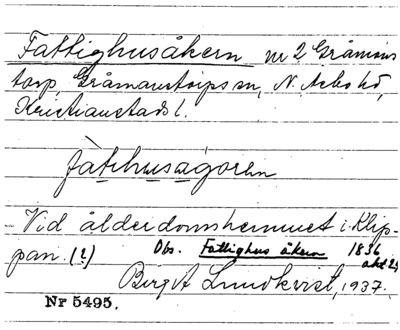 Fattighusåkern nr 2 Gråmans
torp, Gråmanstorps sn, N. Åsbo hd,
Kristianstads l.
fàtihusagoren
Vid ålderdomshemmet i Klip-
pan. (?) Obs. Fattighus åkern 1836
akt 2,
Birgit Lundkvist, 1937.
Nr 5495.